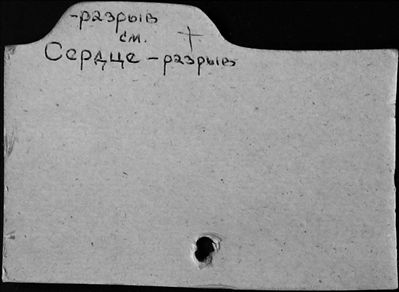 -разрыв
см.
Сердце-разрыв